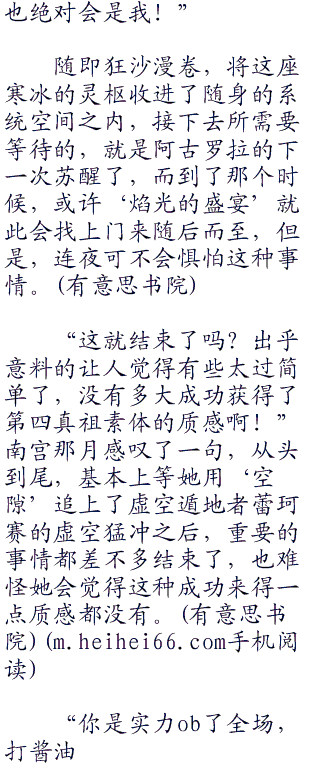 也绝对会是我！”
随即狂沙漫卷，将这座
寒冰的灵柩收进了随身的系
统空间之内，接下去所需要
等待的，就是阿古罗拉的下
一次苏醒了，而到了那个时
候，或许‘焰光的盛宴’就
此会找上门来随后而至，但
是，连夜可不会惧怕这种事
情。(有意思书院)
“这就结束了吗？出乎
意料的让人觉得有些太过简
单了，没有多大成功获得了
第四真祖素体的质感啊！”
南宫那月感叹了一句，从头
到尾，基本上等她用‘空
隙’追上了虚空遁地者蕾珂
赛的虚空猛冲之后，重要的
事情都差不多结束了，也难
怪她会觉得这种成功来得一
点质感都没有。(有意思书
院)(m.heihei66.com手机阅
读)
“你是实力ob了全场，
打酱油